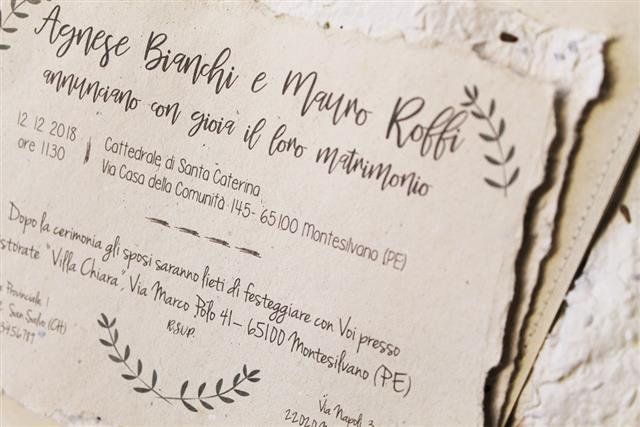 Agnese Bianchi e Mauro Roffi
annunciano con gioia il loro matrimonio
12 12 2018
ore 11.30
Cattedrale di Santa Caterina
Via Casa della Comunità 145- 65100 Montesilvano (PE)
Dopo la cerimonia gli sposi saranno lieti di festeggiare con Voi presso
"Villa Chiara", Via Marco Polo 41- 65100 Montesilvano (PE)
R.S.V.P.
Provinciale 1
San Salvo (CH)
3456789
Via Napoli 3